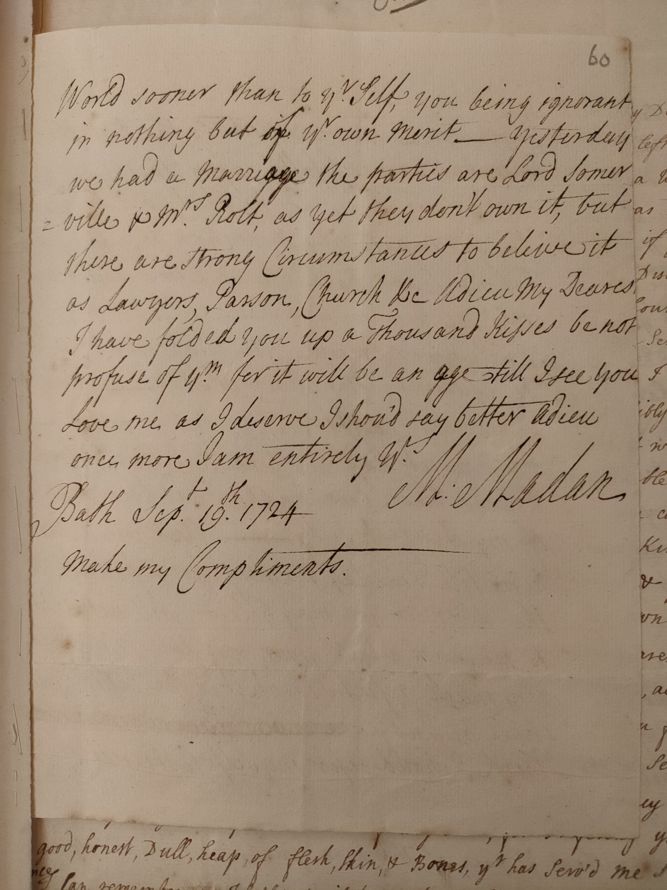 60
World sooner than to yr Self, you being ignorant
in nothing but of yr own merit — yesterday
we had a Marriage the parties are Lord Somer
= ville & Mrs Rolt, as yet they don't own it, but
there are strong Circumstances to believe it
as Lawyers, Parson, Church &c Adieu My Deares
I have folded you up a Thousand Kisses be not
profuse of ym for it will be an age till I see you
Love me as I deserve I shoud say better Adieu
once more I am entirely Yrs
M: Madan
Bath Sept 19th 1724
Make my Compliments.
good, honest, Dull, heap, of flesh, Skin, & Bones, yt has Serv'd me
can remember